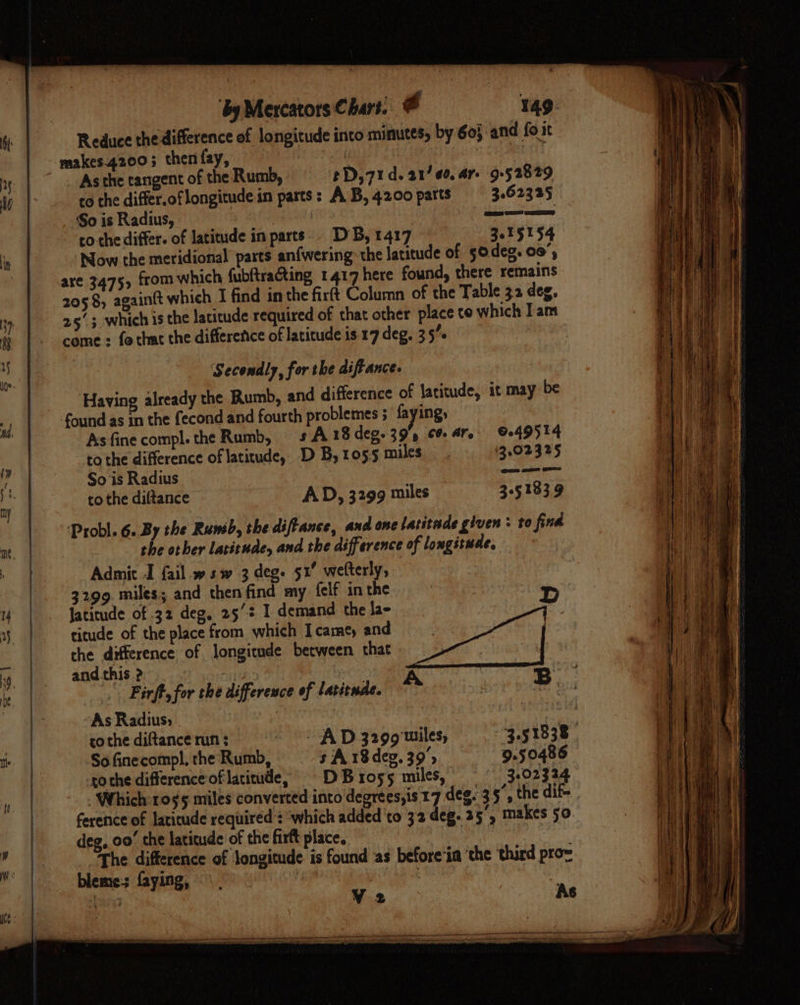 by Mercators Chart. 149
Reduce the difference of longitude into minutes, by 60; and so it
makes 4200; then say,
As the tangent of the Rumb, t D, 71 d. 21′ co. ar. 9.52829
to the differ. of longitude in parts: A B, 4200 parts 3.62325
So is Radius,
to the differ. of latitude in parts D B, 1417 3.15154
Now the meridional parts answering the latitude of 50 deg. 00′,
are 3475, from which subtracting 1417 here found, there remains
2058, against which I find in the first Column of the Table 32 deg.
25′; which is the latitude required of that other place to which I am
come: so that the difference of latitude is 17 deg. 35′.
Secondly, for the distance.
Having already the Rumb, and difference of latitude, it may be
found as in the second and fourth problemes; saying,
As sine compl. the Rumb, s A 18 deg. 39′, co. ar. 0.49514
to the difference of latitude, D B, 1055 miles 3.02325
So is Radius
to the distance A D, 3299 miles 3.51839
Probl. 6. By the Rumb, the distance, and one latitude given: to find
the other latitude, and the difference of longitude.
Admit I sail w s w 3 deg. 51′ westerly,
3299 miles; and then find my self in the
latitude of 32 deg. 25′: I demand the la-
titude of the place from which I came, and
the difference of longitude between that
and this?
D
A B
First, for the difference of latitude.
As Radius,
to the distance run: A D 3299 miles, 3.51838
So sine compl. the Rumb, s A 18 deg. 39′, 9.50486
to the difference of latitude, D B 1055 miles, 3.02324
Which 1055 miles converted into degrees, is 17 deg. 35′, the dif-
ference of latitude required: which added to 32 deg. 25′, makes 50
deg. 00′ the latitude of the first place.
The difference of longitude is found as before in the third pro-
bleme; saying,
V 2 As